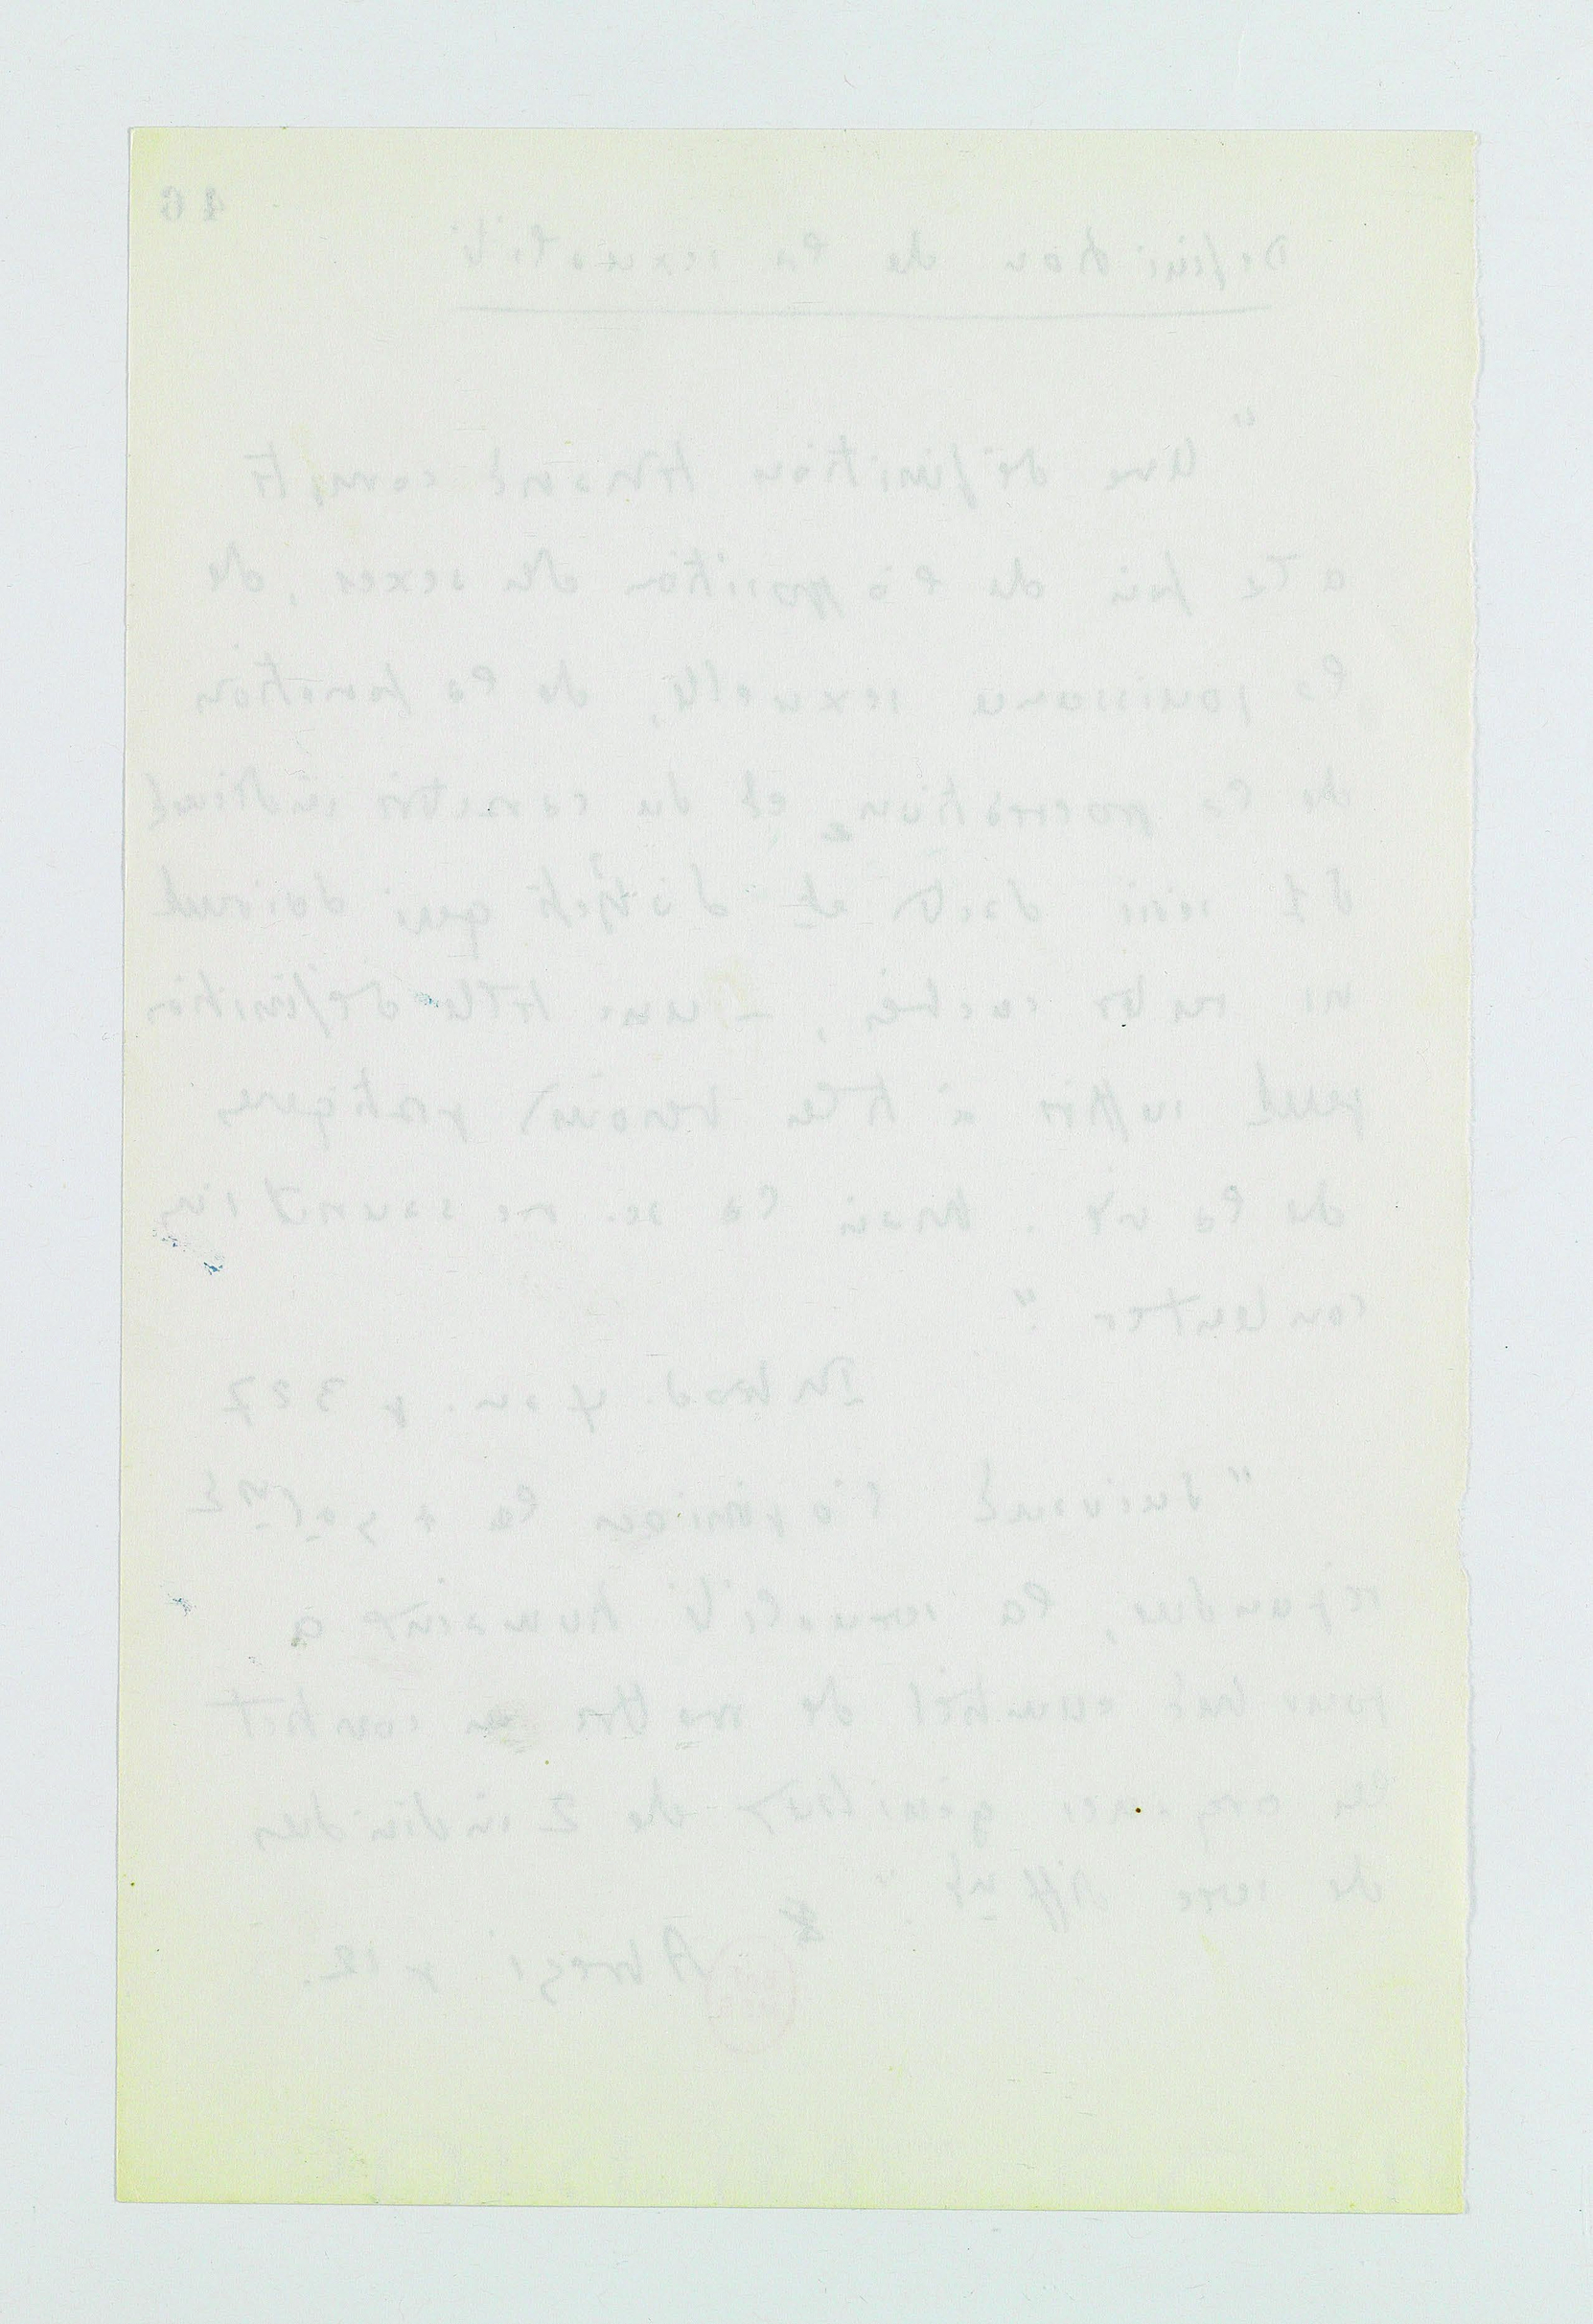 46
Définition de la sexualité
"Une définition tenant compte
à la fois de l'opposition des sexes, de
la jouissance sexuelle, de la fonction
de la procréation, et du caractère indécent
d'1 série d'actes et d'objets qui doivent
rester cachés, – une telle définition
peut suffire à tous besoins pratiques
de la vie. Mais la sc. ne saurait s'en
contenter".
Introd. psan. p 327
"Suivant l'opinion la + galmt
répandue, la sexualité humaine a
pour but essentiel de mettre en contact
les organes génitaux de 2 individus
de sexe diffnt".
Abrégé p 12.